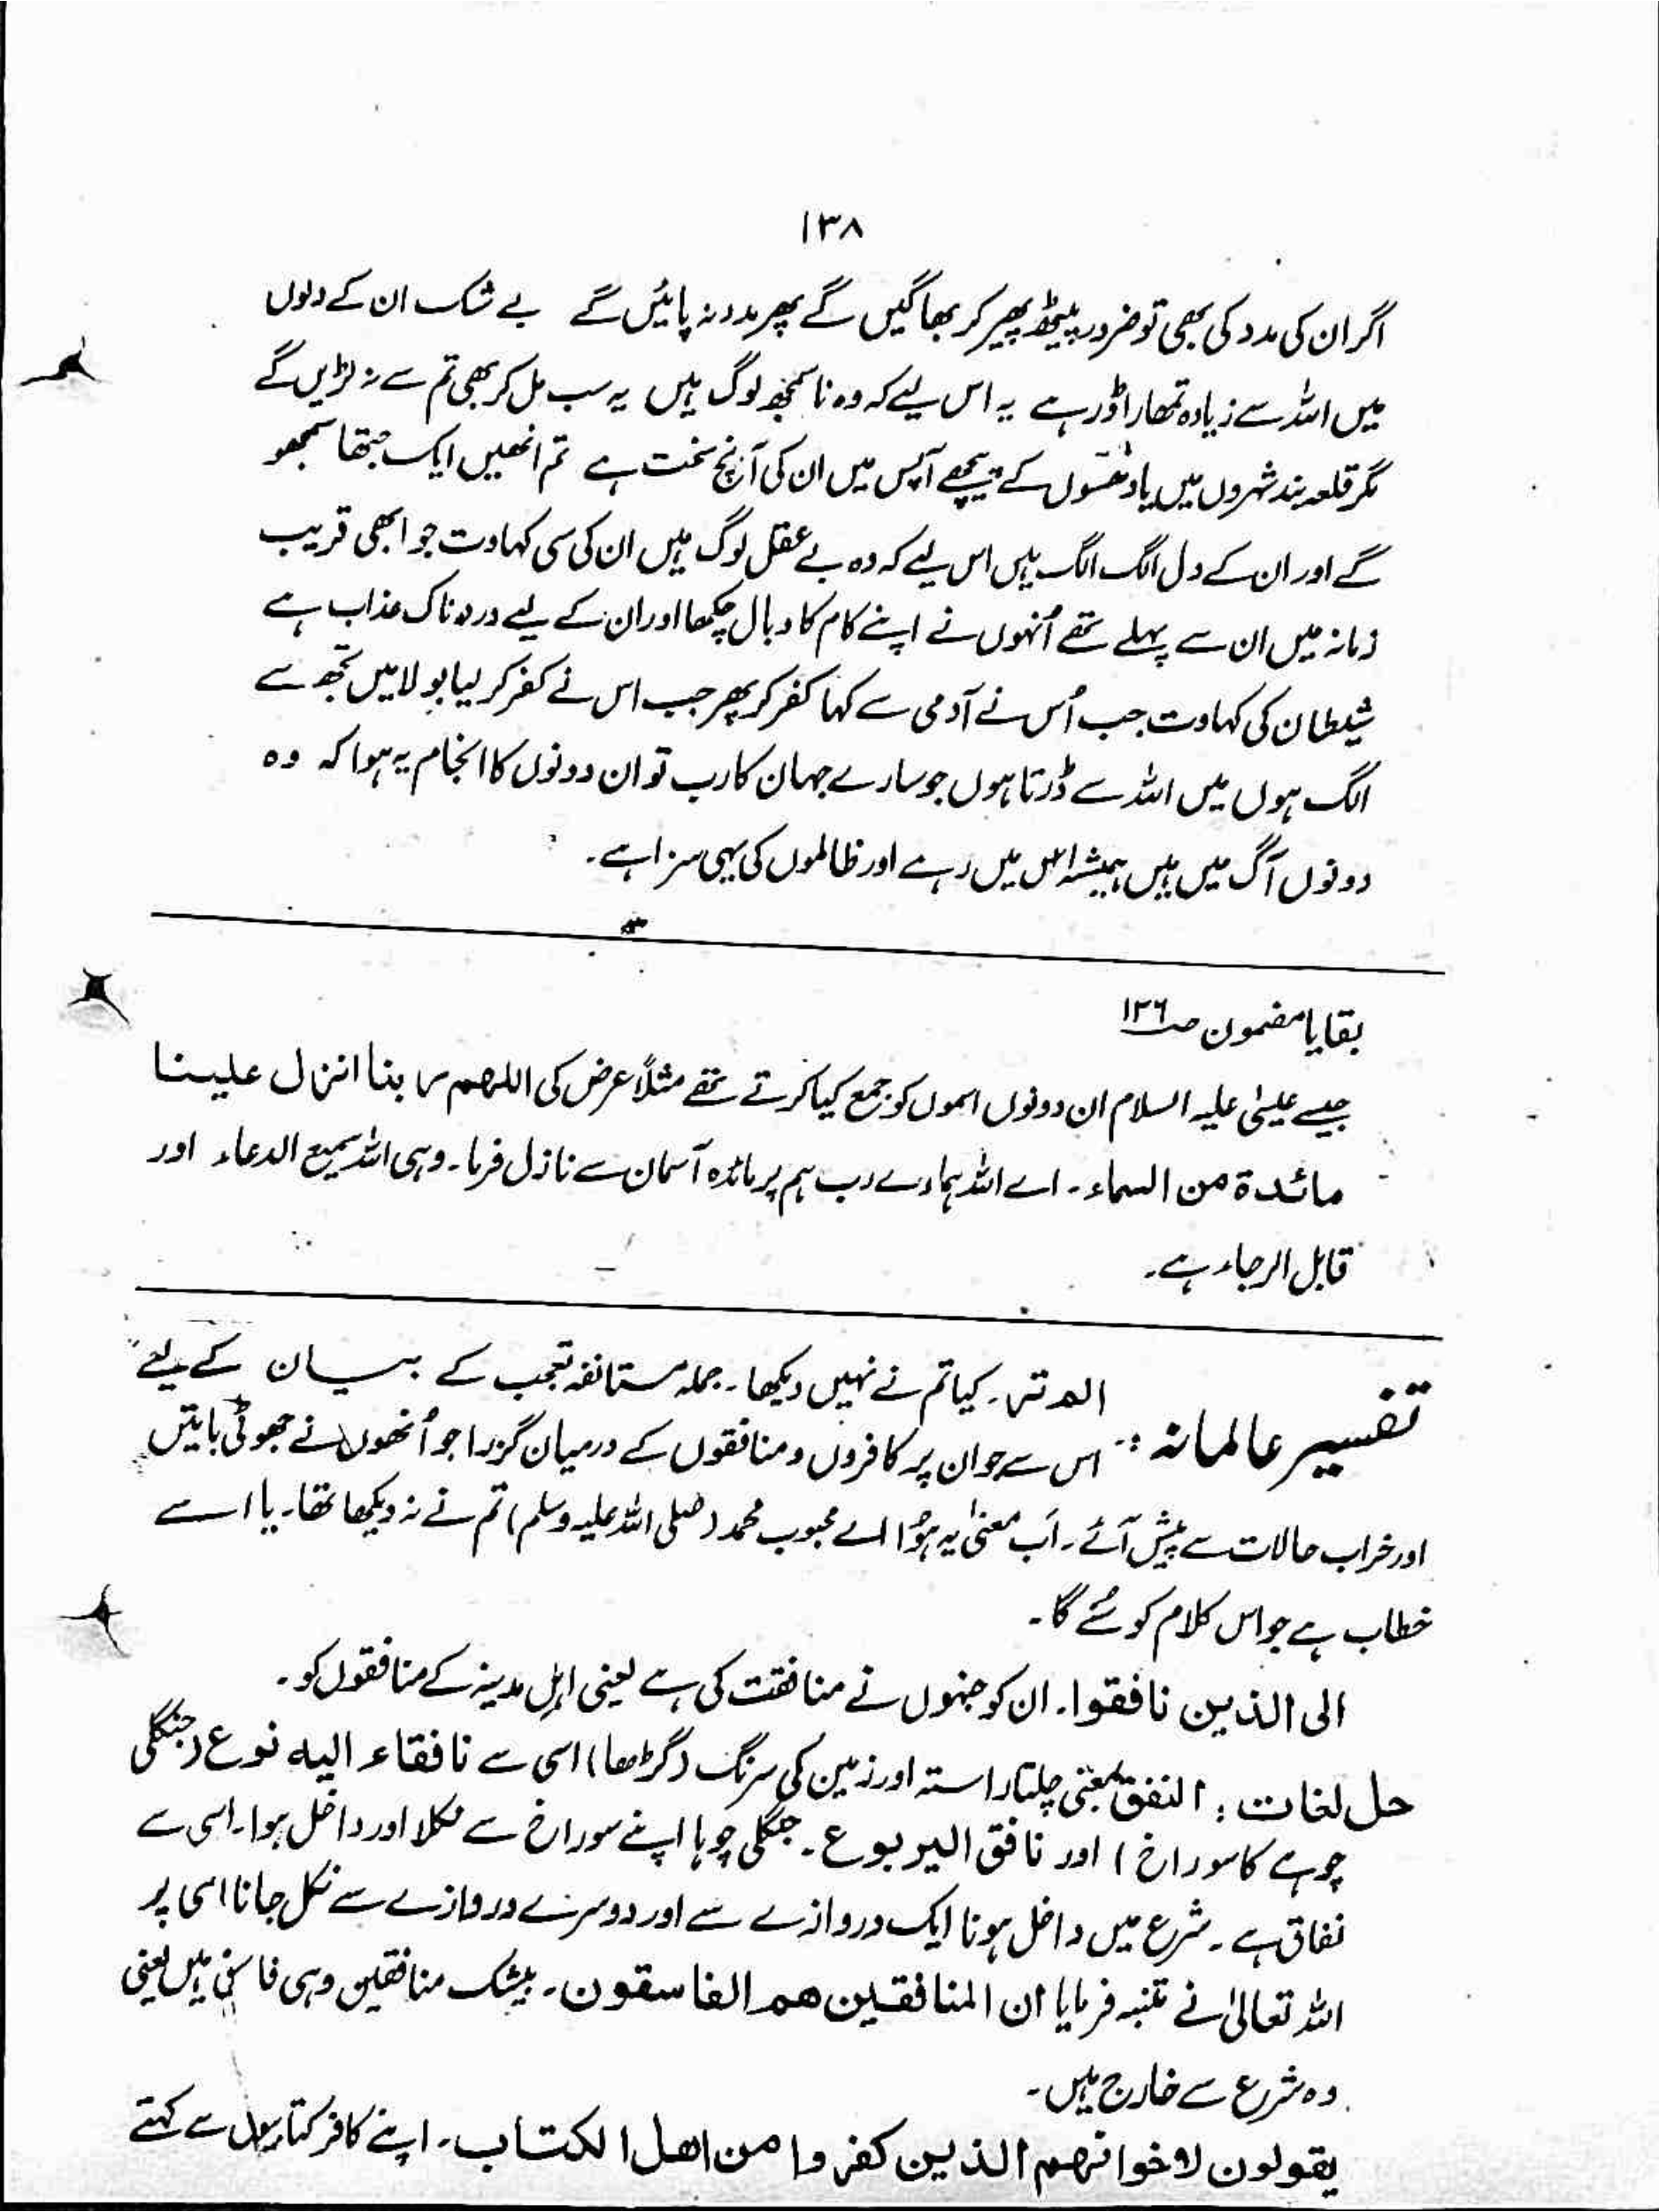 ۱۳۸
اگر ان کی مدد کی بھی تو ضرور پیٹھ پھیر کر بھاگیں گے پھر مدد نہ پائیں گے بے شک ان کے دلوں
میں اللہ سے زیادہ تمھارا ڈر ہے یہ اس لیے کہ وہ ناسمجھ لوگ ہیں یہ سب مل کر بھی تم سے نہ لڑیں گے
مگر قلعہ بند شہروں میں یا دھسّوں کے پیچھے آپس میں ان کی آنچ سخت ہے تم انھیں ایک جتھا سمجھو
گے اور ان کے دل الگ الگ ہیں اس لیے کہ وہ بے عقل لوگ ہیں ان کی سی کہاوت جو ابھی قریب
زمانہ میں ان سے پہلے تھے اُنہوں نے اپنے کام کا وبال چکھا اور ان کے لیے دردناک عذاب ہے
شیطان کی کہاوت جب اُس نے آدمی سے کہا کفر کر پھر جب اس نے کفر کر لیا بولا میں تجھ سے
الگ ہوں میں اللہ سے ڈرتا ہوں جو سارے جہان کا رب تو ان دونوں کا انجام یہ ہوا کہ وہ
دونوں آگ میں ہیں ہمیشہ اس میں رہے اور ظالموں کی یہی سزا ہے۔
بقایا مضمون صـ ۱۲۶
جیسے عیسیٰ علیہ السلام ان دونوں اسموں کو جمع کیا کرتے تھے مثلاً عرض کی اللہم ربنا انزل علینا
مائدۃ من السماء۔ اے اللہ ہمارے رب ہم پر مائدہ آسمان سے نازل فرما۔ وہی اللہ سمیع الدعاء اور
قابل الرجاء ہے۔
تفسیر عالمانہ :۔ الم تر۔ کیا تم نے نہیں دیکھا۔ جملہ مستانفہ تعجب کے بیان کے لیے
اس سے جو ان پر کافروں و منافقوں کے درمیان گزرا جو اُنھوں نے جھوٹی باتیں
اور خراب حالات سے پیش آئے۔ اَب معنیٰ یہ ہوُا اے محبوب محمد (صلی اللہ علیہ وسلم) تم نے نہ دیکھا تھا۔ یا اسے
خطاب ہے جو اس کلام کو سُنے گا۔
الی الذین نافقوا۔ ان کو جنہوں نے منافقت کی ہے یعنی اہلِ مدینہ کے منافقوں کو۔
حل لغات : النفق بمعنی چلتا راستہ اور زمین کی سرنگ (گڑھا) اسی سے نافقاء الیہ نوع (جنگلی
چوہے کا سوراخ) اور نافق الیربوع۔ جنگلی چوہا اپنے سوراخ سے نکلا اور داخل ہوا۔ اسی سے
نفاق ہے۔ شرع میں داخل ہونا ایک دروازے سے اور دوسرے دروازے سے نکل جانا اسی پر
اللہ تعالیٰ نے تنبہ فرمایا ان المنافقین ھم الفاسقون۔ بیشک منافقین وہی فاسق ہیں یعنی
وہ شرع سے خارج ہیں۔
یقولون لاخوانہم الذین کفروا من اھل الکتاب۔ اپنے کافر کتابیوں سے کہتے